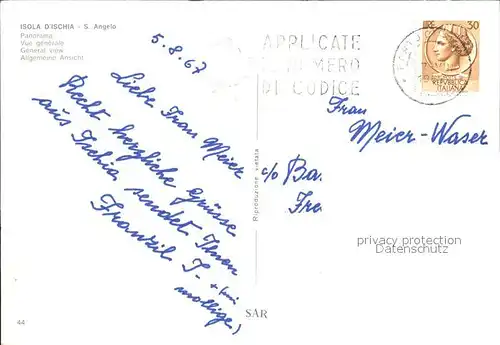 ISOLA D'ISCHIA - S. Angelo
Panorama
Vue générale
General view
Allgemeine Ansicht
5.8.67
Liebe Frau Meier
Recht herzliche Grüsse
aus Ischia sendet Ihnen
APPLICATE
NUMERO
DI CODICE
30
REPVBBLICA
ITALIANA
Frau
Meier-Waser
c/o Ba.
Fre
Riproduzione vietata
privacy protection
Datenschutz
SAR
44